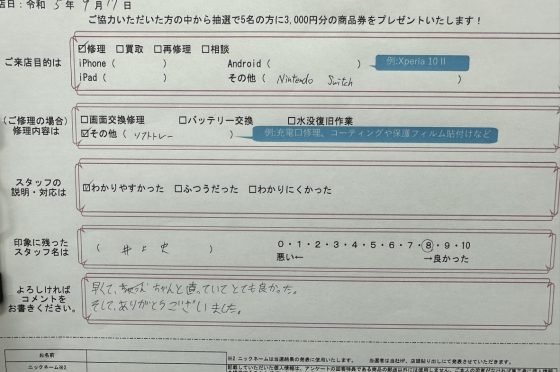 店日：令和 5年 9月17日
ご協力いただいた方の中から抽選で5名の方に3,000円分の商品券をプレゼントいたします！
ご来店目的は
☑修理 □買取 □再修理 □相談
iPhone（ ） Android（ ） 例:Xperia 10 II
iPad（ ） その他（ Nintendo Switch ）
（ご修理の場合）
修理内容は
□画面交換修理 □バッテリー交換 □水没復旧作業
☑その他（ ソフトトレー ） 例:充電口修理、コーティングや保護フィルム貼付けなど
スタッフの
説明・対応は
☑わかりやすかった □ふつうだった □わかりにくかった
印象に残った
スタッフ名は
（ 井上 ） 0・1・2・3・4・5・6・7・8・9・10
悪い← →良かった
よろしければ
コメントを
お書きください。
早くて、ちゃんと直っていてとても良かった。
そして、ありがとうございました。
お名前
ニックネーム※2
※2 ニックネームは当選結果の発表に使用いたします。 当選者は当社HP、店頭貼り出しにて発表させていただきます。